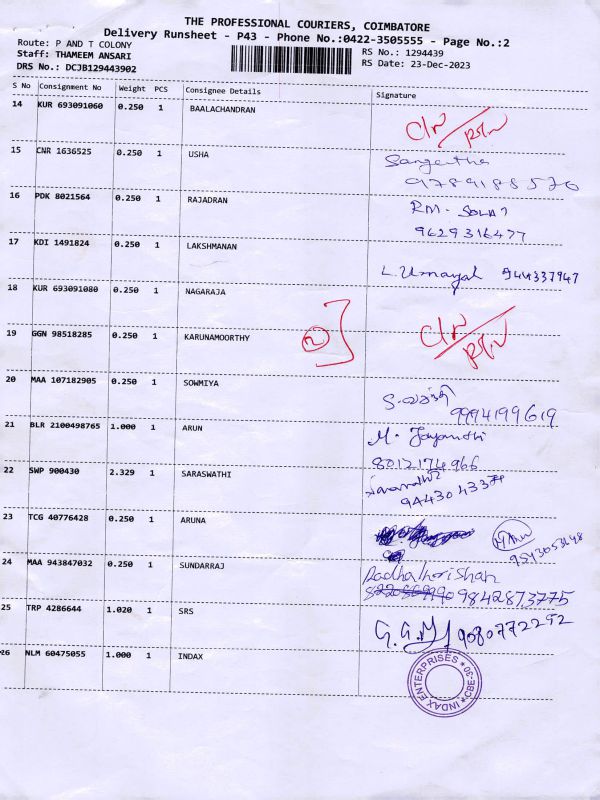 THE PROFESSIONAL COURIERS, COIMBATORE
Delivery Runsheet - P43 - Phone No.:0422-3505555 - Page No.:2
Route: P AND T COLONY
Staff: THAMEEM ANSARI
DRS No.: DCJB129443902
RS No.: 1294439
RS Date: 23-Dec-2023
S No Consignment No Weight PCS Consignee Details Signature
14 KUR 693091060 0.250 1 BAALACHANDRAN
15 CNR 1636525 0.250 1 USHA Sangeetha
9789188570
16 PDK 8021564 0.250 1 RAJADRAN RM-
9629316477
17 KDI 1491824 0.250 1 LAKSHMANAN L. Umayal 944337947
18 KUR 693091080 0.250 1 NAGARAJA
19 GGN 98518285 0.250 1 KARUNAMOORTHY 2
20 MAA 107182905 0.250 1 SOWMIYA
9994199619
21 BLR 2100498765 1.000 1 ARUN M. Jayanthi
8012174966
22 SWP 900430 2.329 1 SARASWATHI
9443043374
23 TCG 40776428 0.250 1 ARUNA
24 MAA 943847032 0.250 1 SUNDARRAJ Radhakrishan
9842873775
25 TRP 4286644 1.020 1 SRS 9080772292
26 NLM 60475055 1.000 1 INDAX
INDAX ENTERPRISES * CBE-30 *